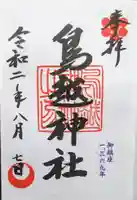 奉拝
鳥越神社
御鎮座
一三六九年
令和二年八月七日